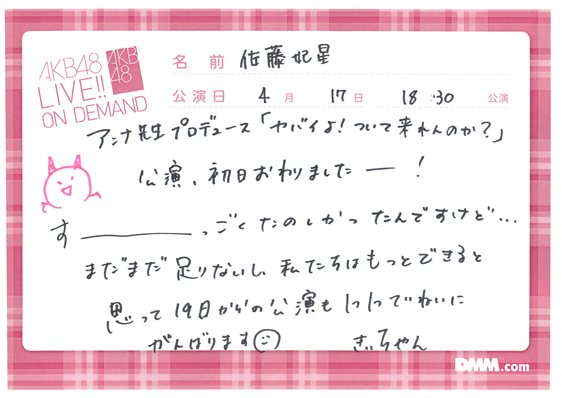 AKB48
LIVE!!
ON DEMAND
AKB
48
名 前 佐藤妃星
公演日 4月 17日 18:30 公演
アンナ先生プロデュース「ヤバイよ!ついて来れんのか?」
公演、初日おわりましたー!
すーーっごくたのしかったんですけど…
まだまだ足りないし、私たちはもっとできると
思って19日からの公演も
がんばります
きぃちゃん
DMM.com